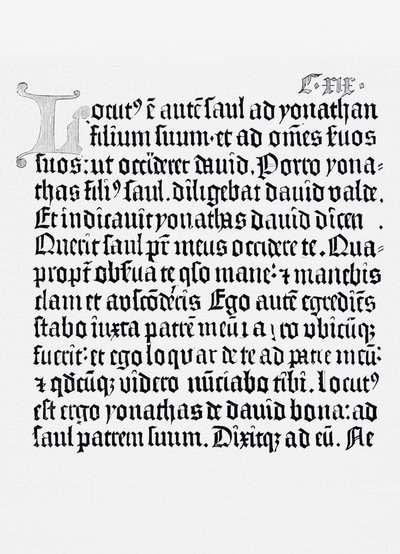 C·XIX·
Locutꝰ ē autē saul ad yonathan
filium suum·et ad om̄es ẜuos
suos: ut occideret dauid. Porro yona-
thas filiꝰ saul. diligebat dauid valde.
Et indicauit yonathas dauid dicen .
Querit saul pr̄ meus occidere te. Qua-
propt̄ obẜua te q̄so mane: ⁊ manebis
clam et absco̅deris Ego autē egrediēs
stabo iuxta patrē meū ī a co vbicūqꝫ
fuerit: et ego loquar de te ad patrē meū:
⁊ qdcūqꝫ videro nūciabo tibi. Locutꝰ
est ergo yonathas de dauid bona: ad
saul patrem suum. Dixitqꝫ ad eū. Ne